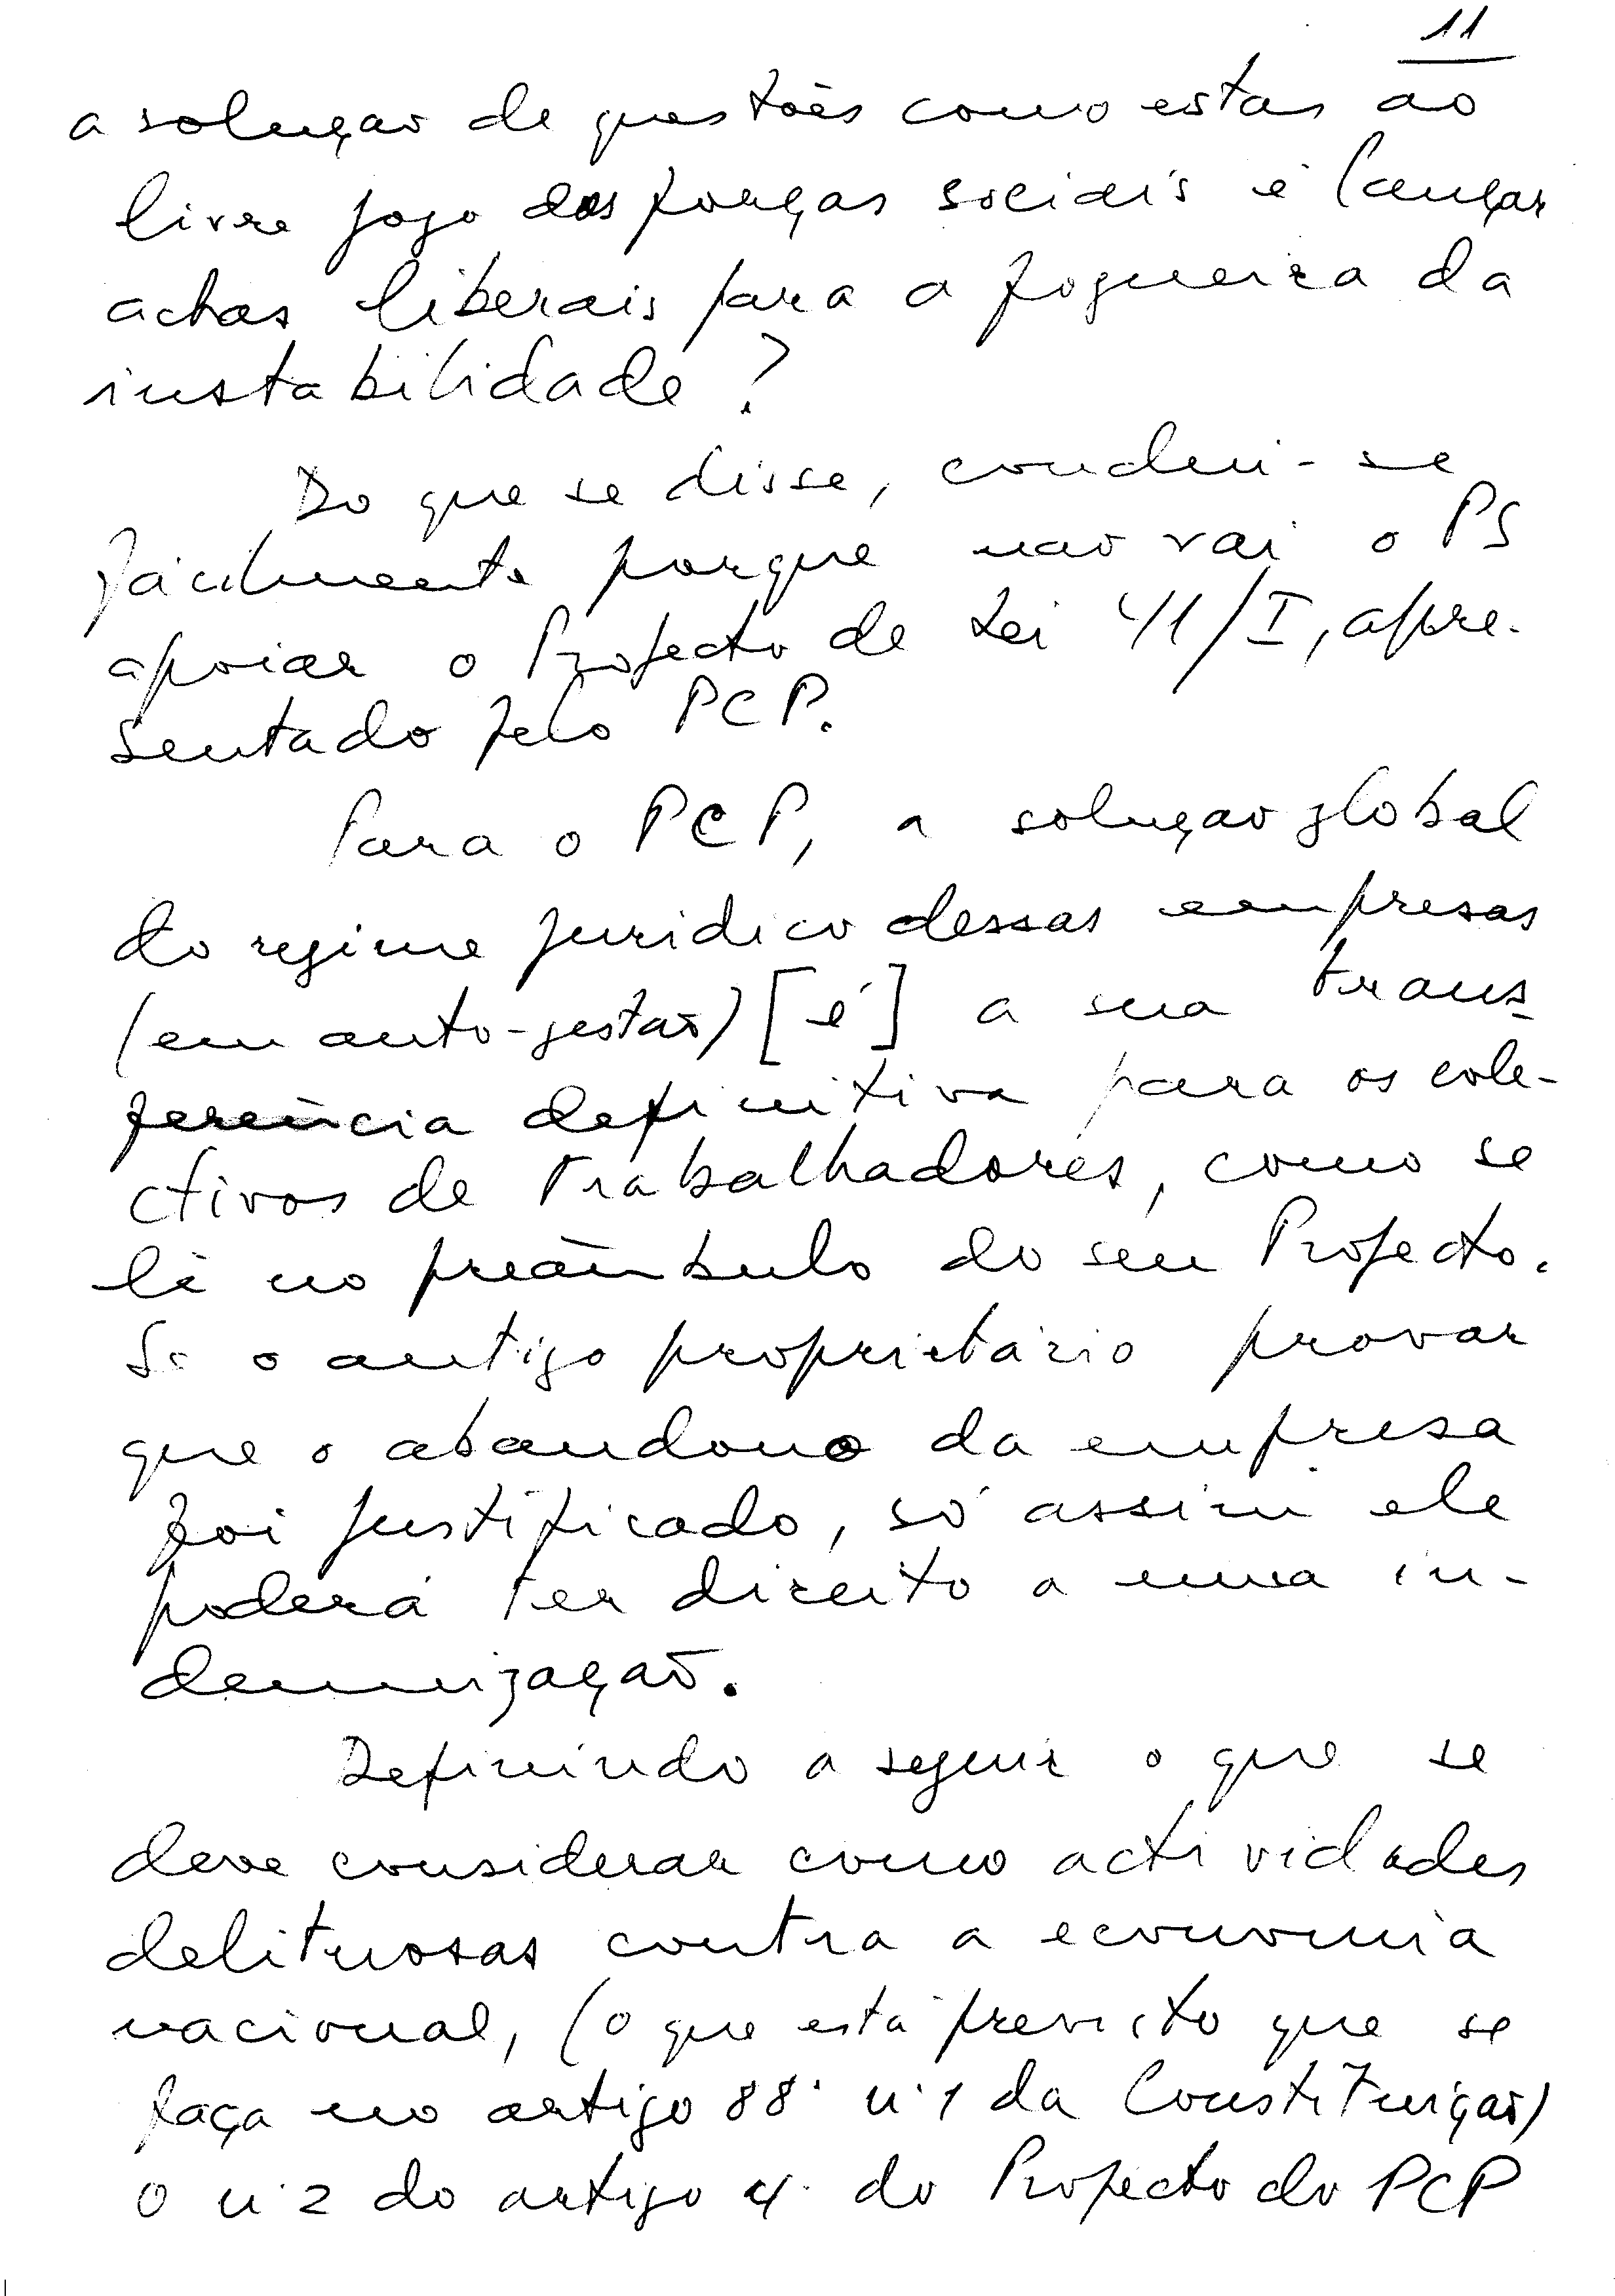 11
a solução de questões como estas ao
livre jogo das forças sociais é lançar
achas liberais para a fogueira da
instabilidade?
Do que se disse, conclui-se
fácilmente porque não vai o PS
apoiar o Projecto de Lei 41/I, apre-
sentado pelo PCP.
Para o PCP, a solução global
do regime jurídico dessas empresas
(em auto-gestão) [é] a sua trans-
ferência definitiva para os cole-
ctivos de trabalhadores, como se
lê no preâmbulo do seu Projecto.
Se o antigo proprietário provar
que o abandono da empresa
foi justificado, só assim ele
poderá ter direito a uma in-
demnização.
Definindo a seguir o que se
deve considerar como actividades
delituosas contra a economia
nacional, (o que está previsto que se
faça no artigo 88º nº 1 da Constituição)
o nº 2 do artigo 4º do Projecto do PCP